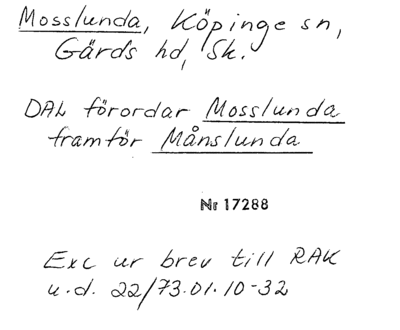 Mosslunda, Köpinge sn,
Gärds hd, Sk.
DAL förordar Mosslunda
framför Månslunda
Nr 17288
Exc ur brev till RAK
u.d. 22/73.01.10-32